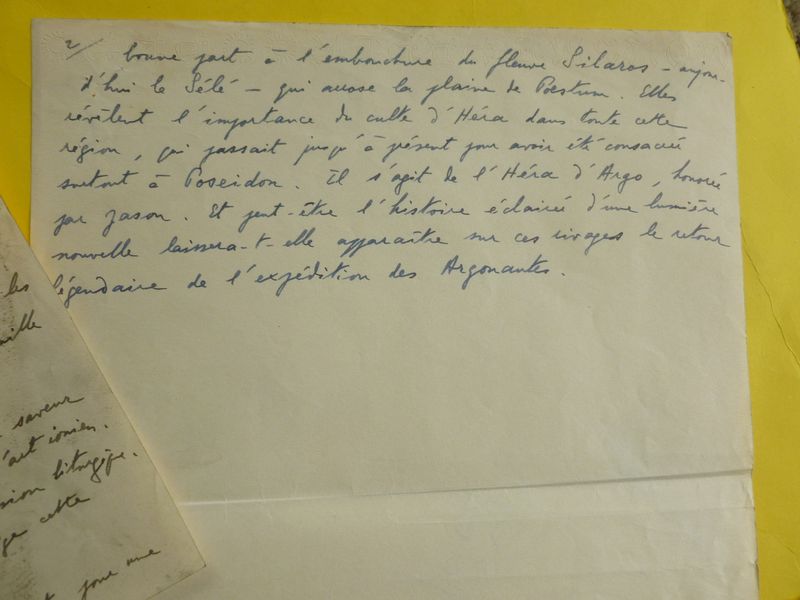 2/
bonne part à l'embouchure du fleuve Silaros – aujour-
d'hui le Sélé – qui arrose la plaine de Poestum. Elles
révèlent l'importance du culte d'Héra dans toute cette
région, qui passait jusqu'à présent pour avoir été consacrée
surtout à Poseidon. Il s'agit de l'Héra d'Argo, honorée
par Jason. Et peut-être l'histoire éclairée d'une lumière
nouvelle laissera-t-elle apparaître sur ces rivages le retour
légendaire de l'expédition des Argonautes.
les
saveur
l'art ionien.
cette
joue une